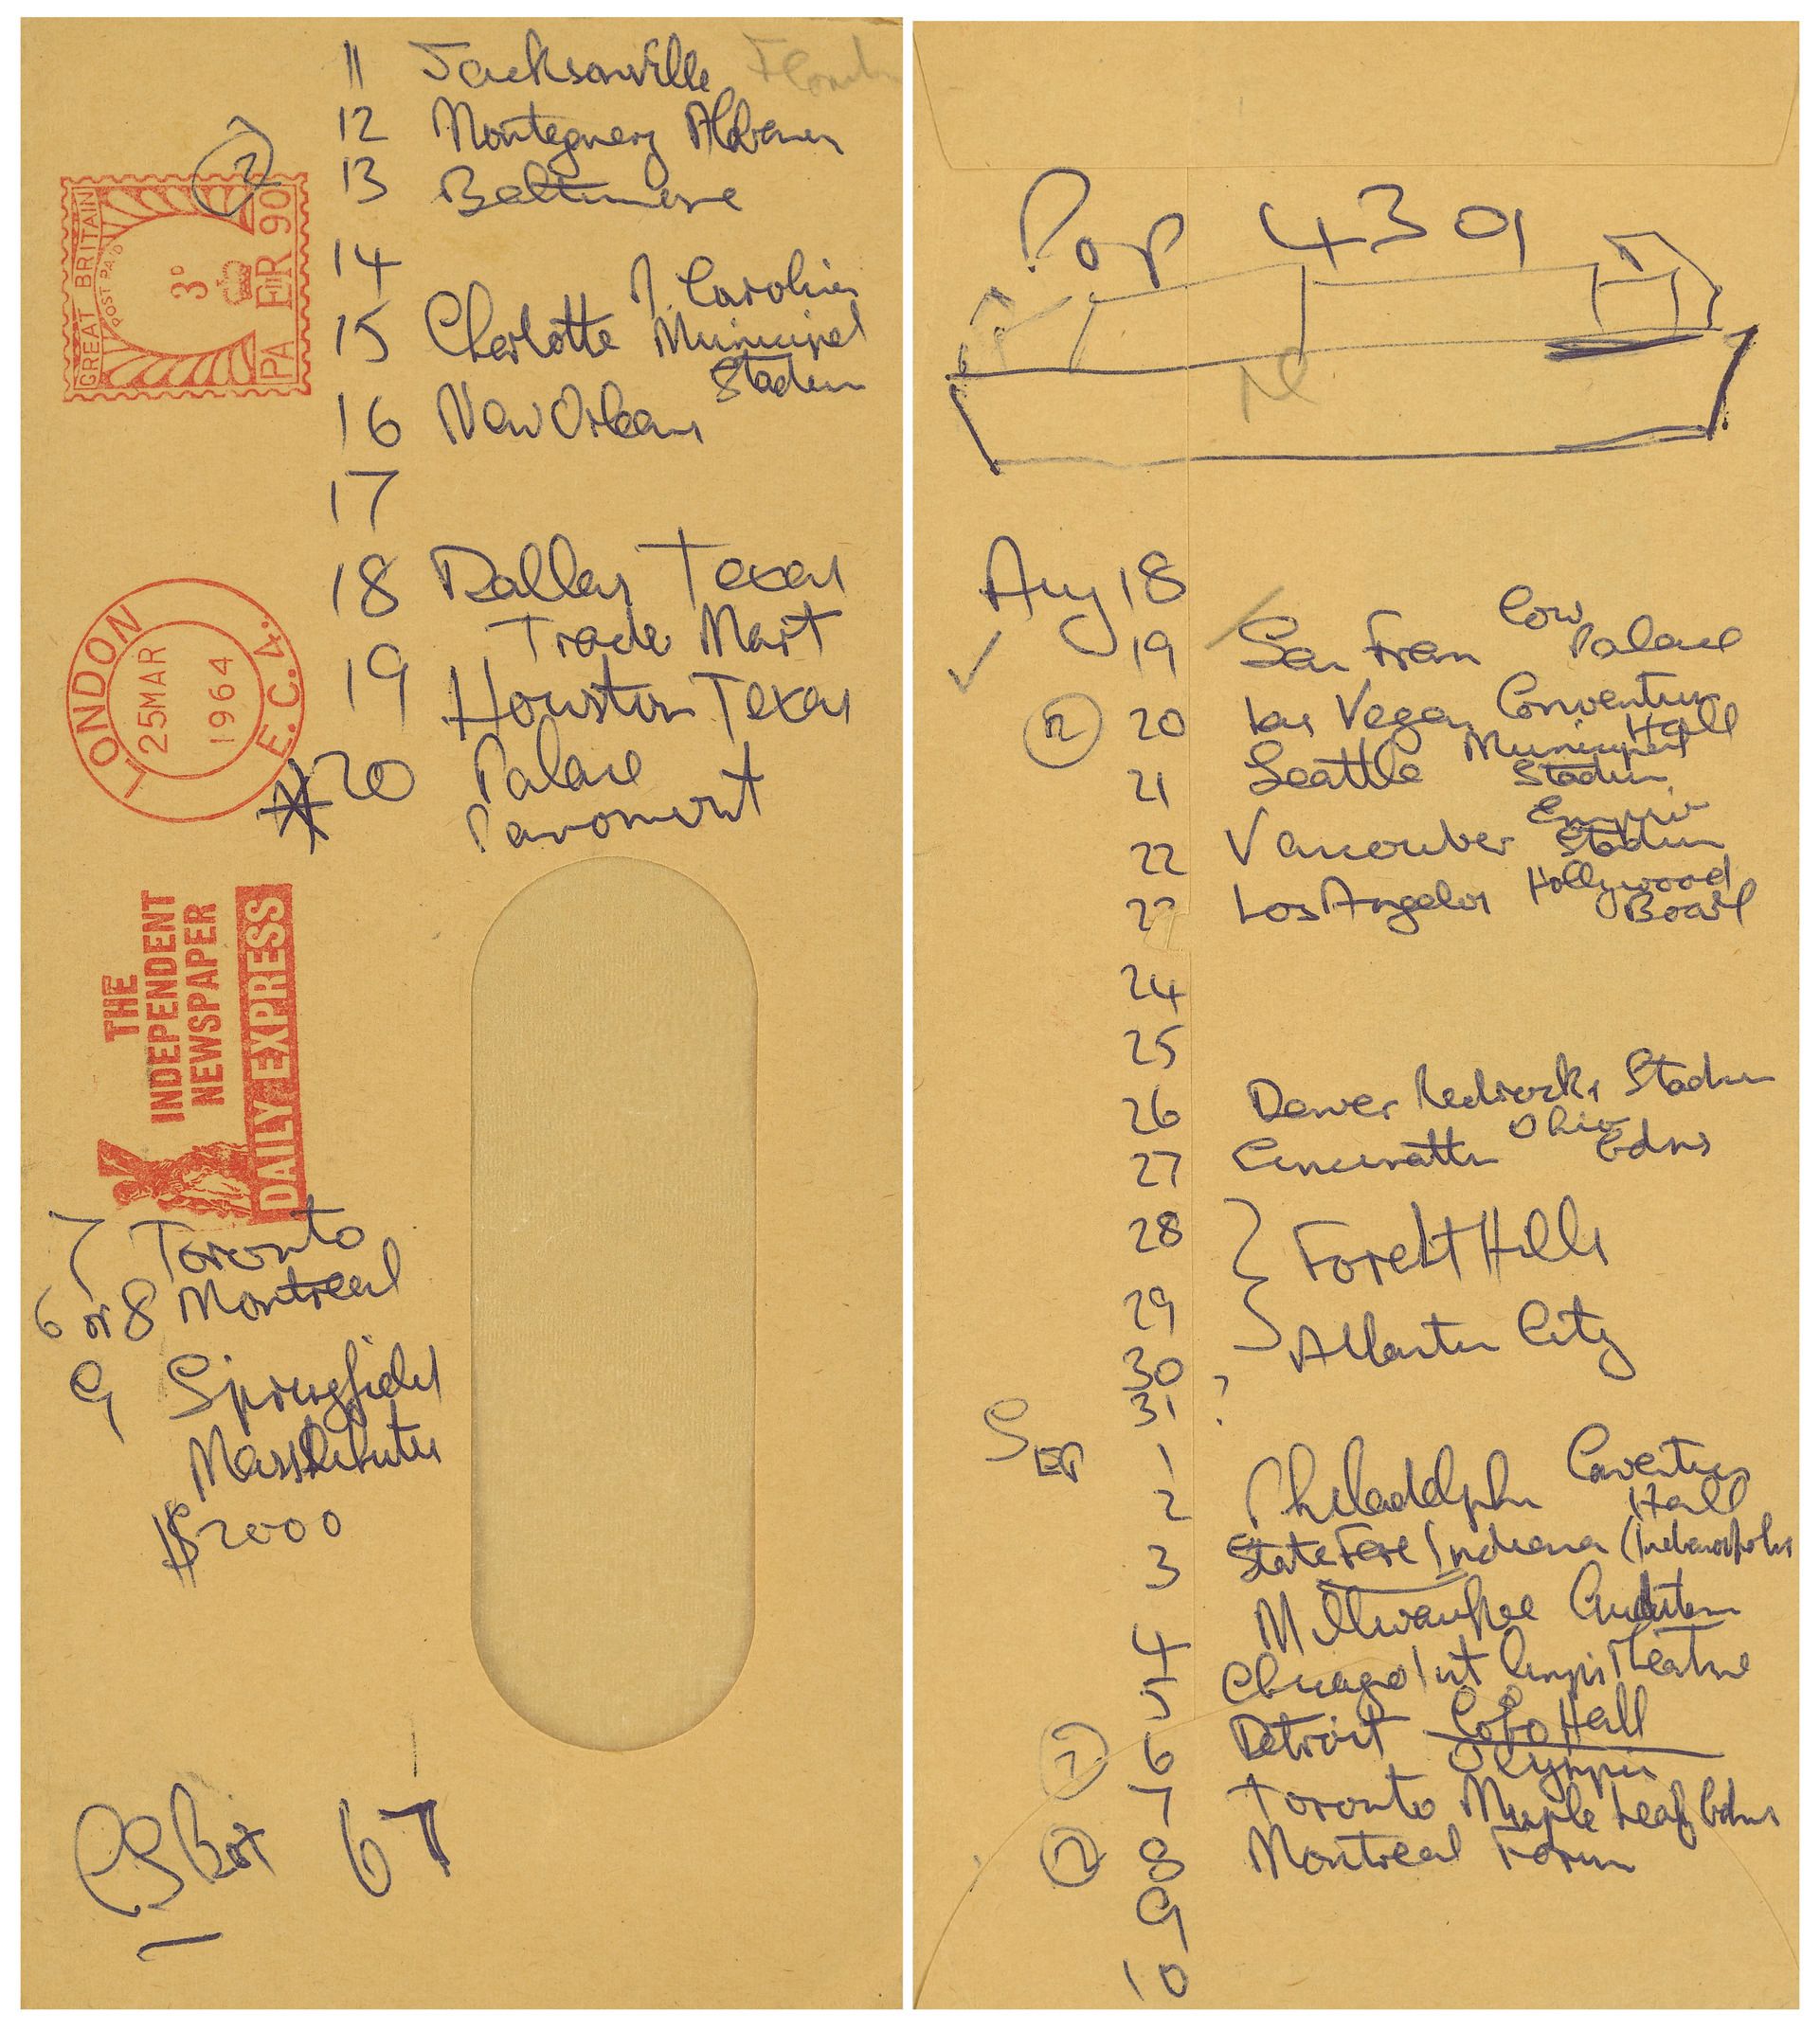 11 Jacksonville Florida
12 Montegmery Alabama
13 Baltimore
14
N. Carolina
15 Charlotte Municipal
Stadium
16 New Orleans
17
18 Dallas Texas
Trade Mart
19 Houston Texas
20 Palace
Paramount
GREAT BRITAIN
POST PAID
3D
E II R
PA 90
LONDON
25 MAR
1964
E.C.4.
THE
INDEPENDENT
NEWSPAPER
DAILY EXPRESS
7 Toronto
6 or 8 Montreal
9 Springfield
$2000
Box 67
Pop 4309
Aug 18
19 San Fran Cow
Palace
2 20 Las Vegas Convention
Hall
21 Seattle Municipal
Stadium
22 Vancouver Empire
Stadium
23 Los Angeles Hollywood
Bowl
24
25
26 Denver Redrocks Stadium
27 Cincinatti Ohio
Gdns
28 Forest Hills
29
30 Atlantic City
31 ?
SEP 1
2 Philadelphia Convention
Hall
3 State Fare Indiana (Indianapolis
4 Milwaukee Auditorium
5 Chicago Int Ampitheatre
6 Detroit Cobo Hall
Olympia
7 Toronto Maple Leaf Gdns
2 8 Montreal Forum
9
10